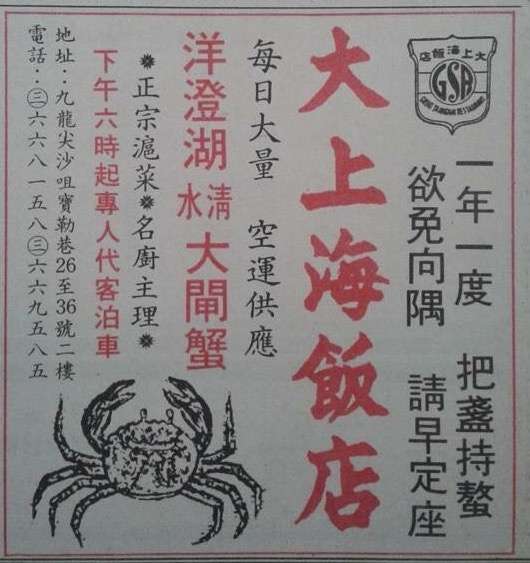 大上海飯店
GSR
一年一度 把盞持螯
欲免向隅 請早定座
大上海飯店
每日大量 空運供應
洋澄湖清水大閘蟹
✹正宗滬菜✹名廚主理✹
下午六時起專人代客泊車
地址：九龍尖沙咀寶勒巷26至36號二樓
電話：㊂六六八一五八㊂六六九五八五